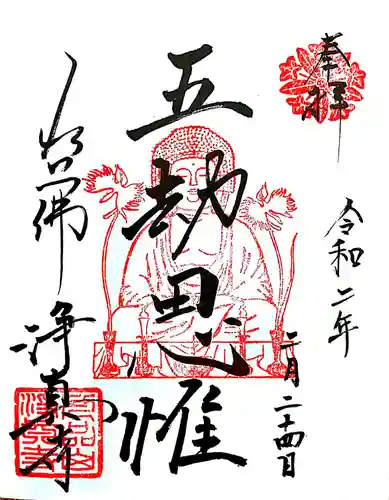 奉拝
令和二年
二月二十四日
五劫思惟
九品佛
浄真寺